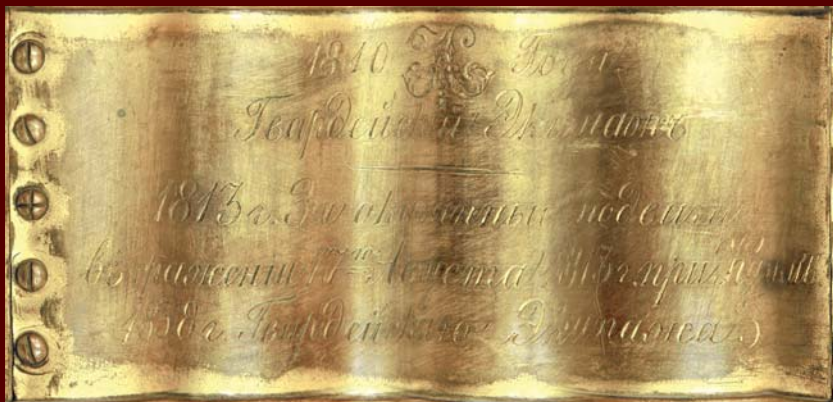 1810 Года
Гвардейскій Экипажъ
1813 г. За оказанные подвиги
въ сраженіи 17го Августа 1813 г. при Кульмѣ
г. Гвардейскаго Экипажа